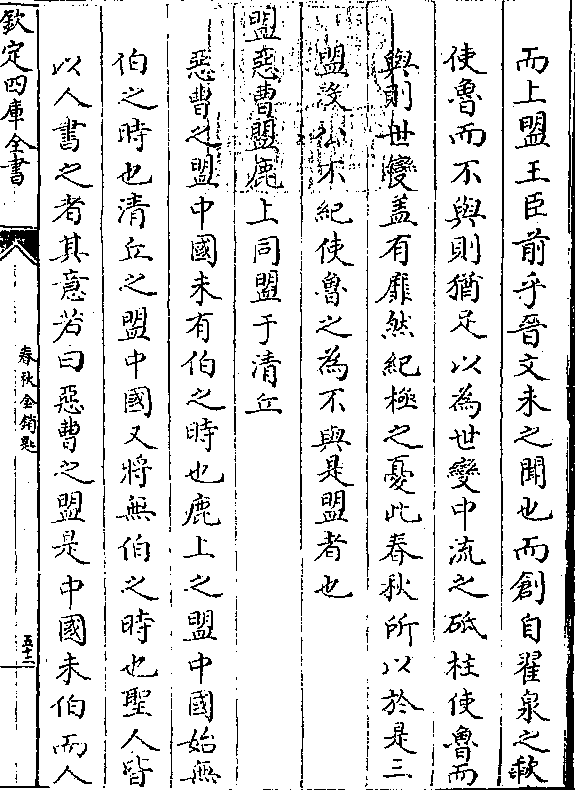 而上盟王臣前乎晉文未之聞也而創自翟泉之歃
使魯而不與則猶足以為世變中流之砥柱使魯而
與則世變蓋有靡然紀極之憂此春秋所以於是三
盟没公不紀使魯之為不與是盟者也
盟惡曹盟鹿上同盟于清丘
惡曹之盟中國未有伯之時也鹿上之盟中國始無
伯之時也清丘之盟中國又將無伯之時也聖人皆
以人書之者其意若曰惡曹之盟是中國未伯而人
欽定四庫全書
春秋金鎖匙
五十二